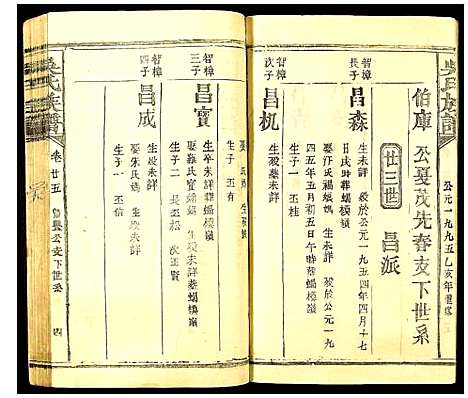 吳氏族譜
公元一九九五乙亥年
伯庫公夏茂先春支下世系
廿三世 昌派
智樟
長子
昌森
生未詳 歿於公元一九五四年四月十七
日戌時葬蝎模嶺
娶汪氏 生未詳 歿於公元一九
四五年五月初五日午時葬蝎模嶺
生子一 丕桂
智樟
次子
昌机
生歿葬未詳
生歿葬
生子一 丕有
智樟
三子
昌寶
生卒未詳葬蝎模嶺
娶 氏寶 生歿未詳葬蝎模嶺
生子二 長丕松 次丕賢
智樟
四子
昌成
生歿未詳
娶朱氏 生歿未詳
生子一 丕信
吳氏族譜
卷廿五
公支下世系
四